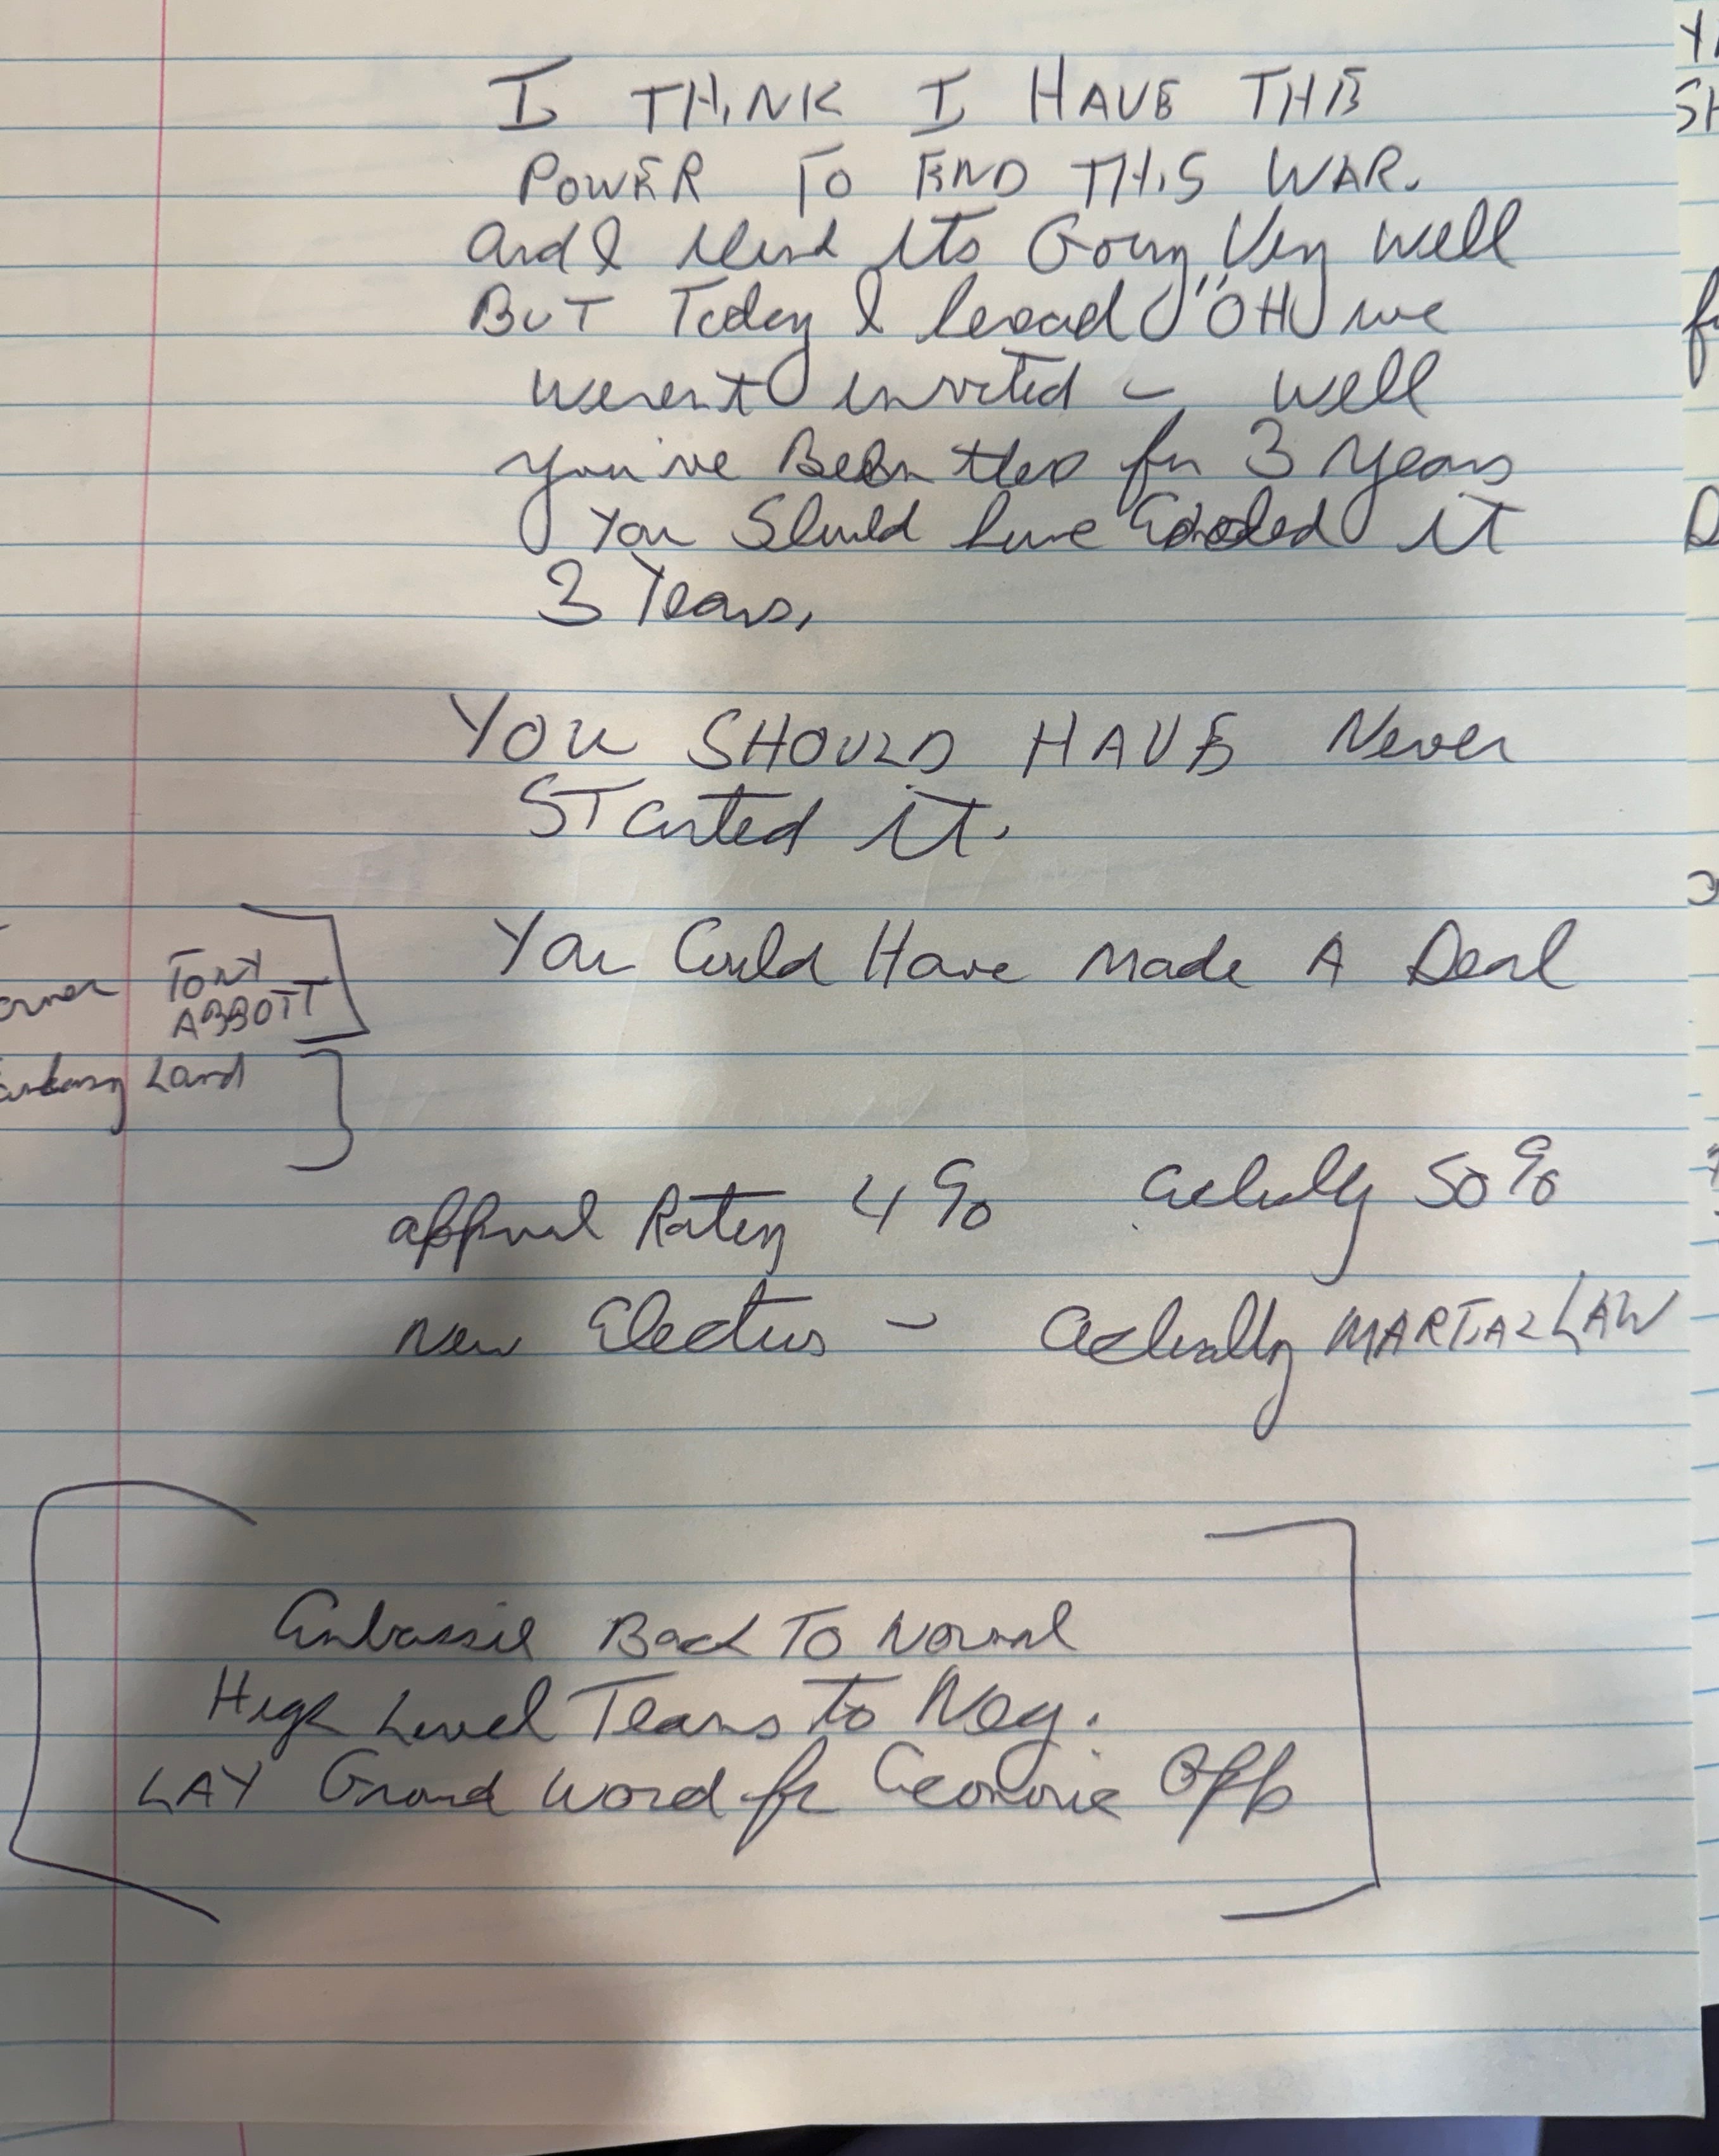 I THINK I HAVE THE
POWER TO END THIS WAR.
and I think its Going Very well
BUT Today I heard "OH we
werent invited - well
you've Been there for 3 years
You Should have Ended it
3 Years.
YOU SHOULD HAVE Never
STarted it.
You Could Have Made A Deal
TONY
ABBOTT
Land
approval Rating 4% actually 50%
New Elections - actually MARTIAL LAW
Embassie Back To Normal
High Level Teams to Neg.
LAY Ground Word for Economic Opp